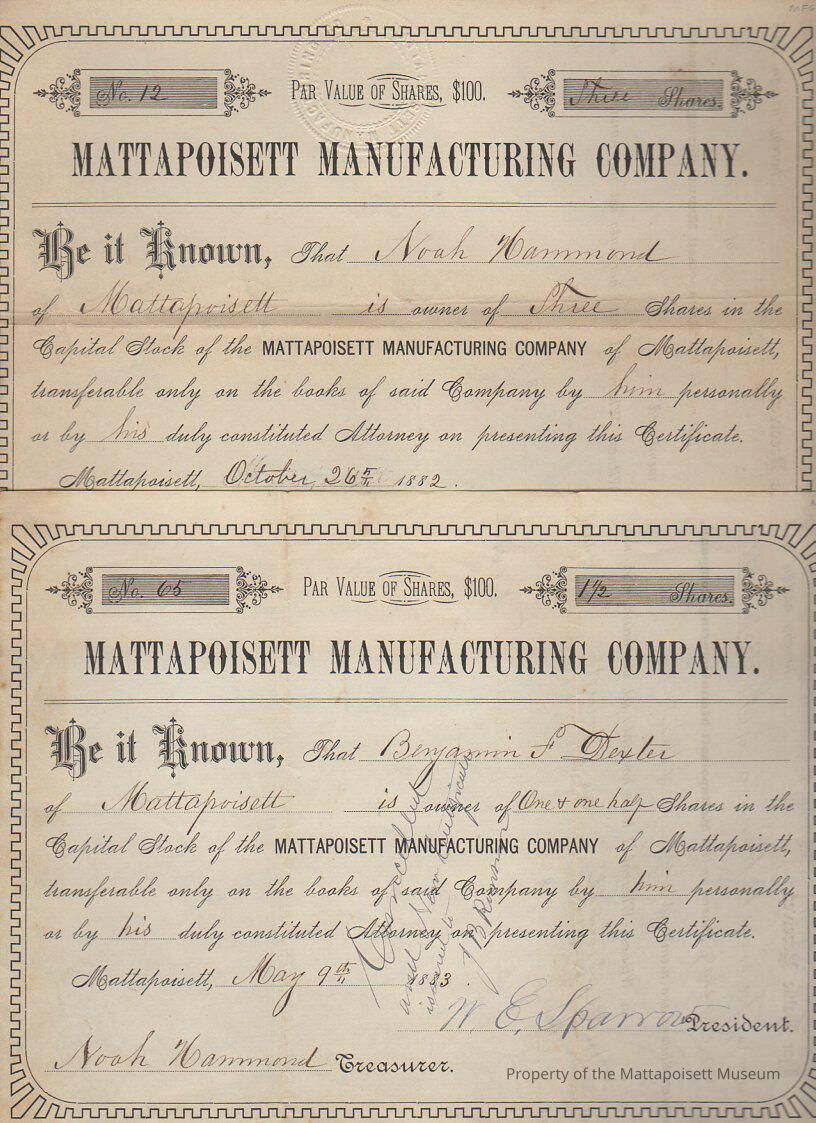 MFG
No. 12
PAR VALUE OF SHARES, $100.
Three Shares.
MATTAPOISETT MANUFACTURING COMPANY.
Be it Known, That Noah Hammond
of Mattapoisett is owner of Three Shares in the
Capital Stock of the MATTAPOISETT MANUFACTURING COMPANY of Mattapoisett,
transferable only on the books of said Company by him personally
or by his duly constituted Attorney on presenting this Certificate.
Mattapoisett, October 26th 1882.
No. 65
PAR VALUE OF SHARES, $100.
1 1/2 Shares.
MATTAPOISETT MANUFACTURING COMPANY.
Be it Known, That Benjamin F Dexter
of Mattapoisett is owner of One & one half Shares in the
Capital Stock of the MATTAPOISETT MANUFACTURING COMPANY of Mattapoisett,
transferable only on the books of said Company by him personally
or by his duly constituted Attorney on presenting this Certificate.
Mattapoisett, May 9th 1883.
Cancelled
and New Certificate
issued to
W. E. Sparrow President.
Noah Hammond Treasurer.
Property of the Mattapoisett Museum